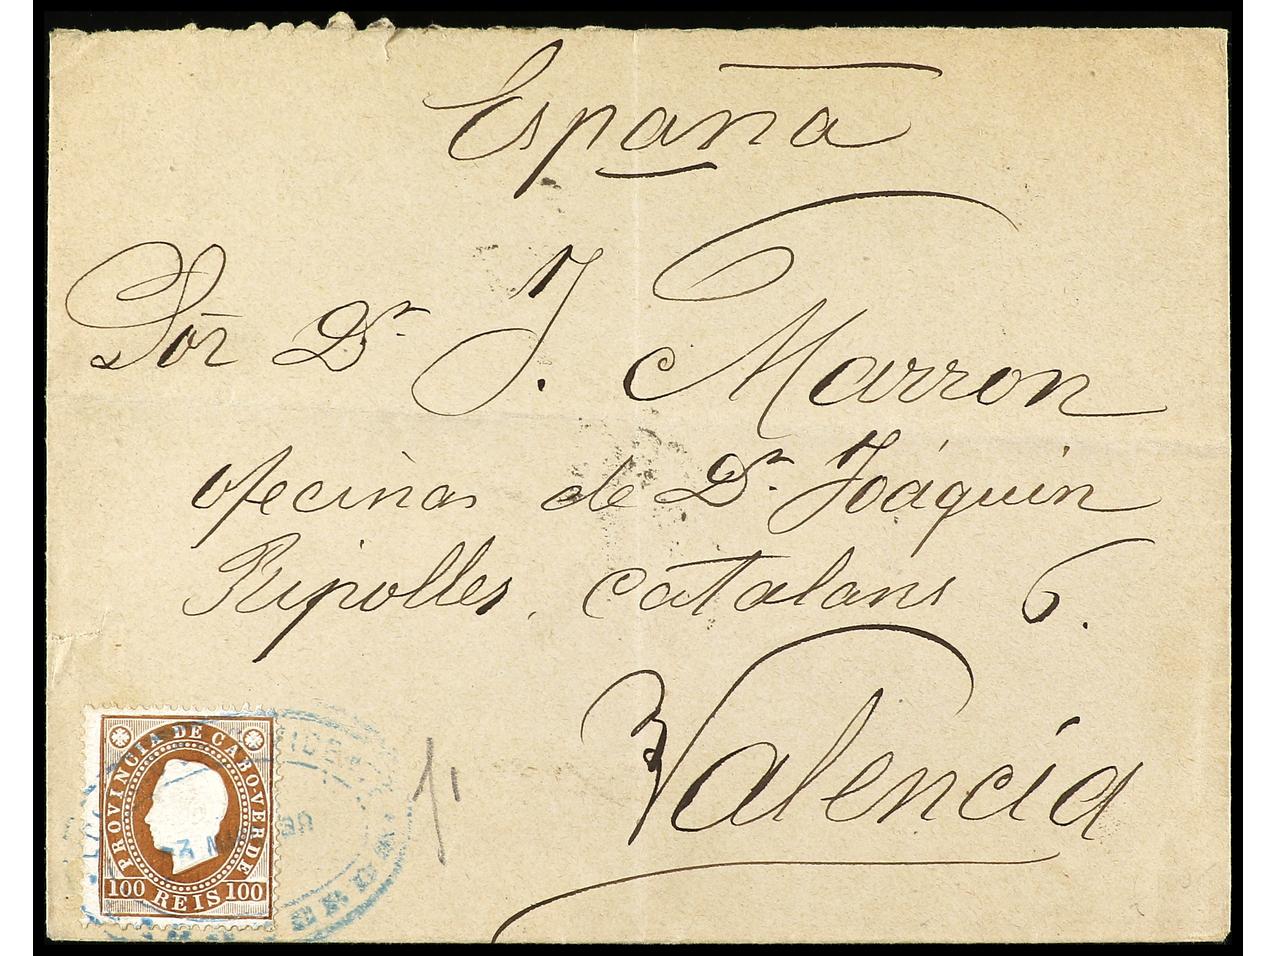 España
Sör Dn. J. Marron
oficinas de Dn. Joáquin
Ripolles, catalans 6.
Valencia
PROVINCIA DE CABO-VERDE
100 REIS 100